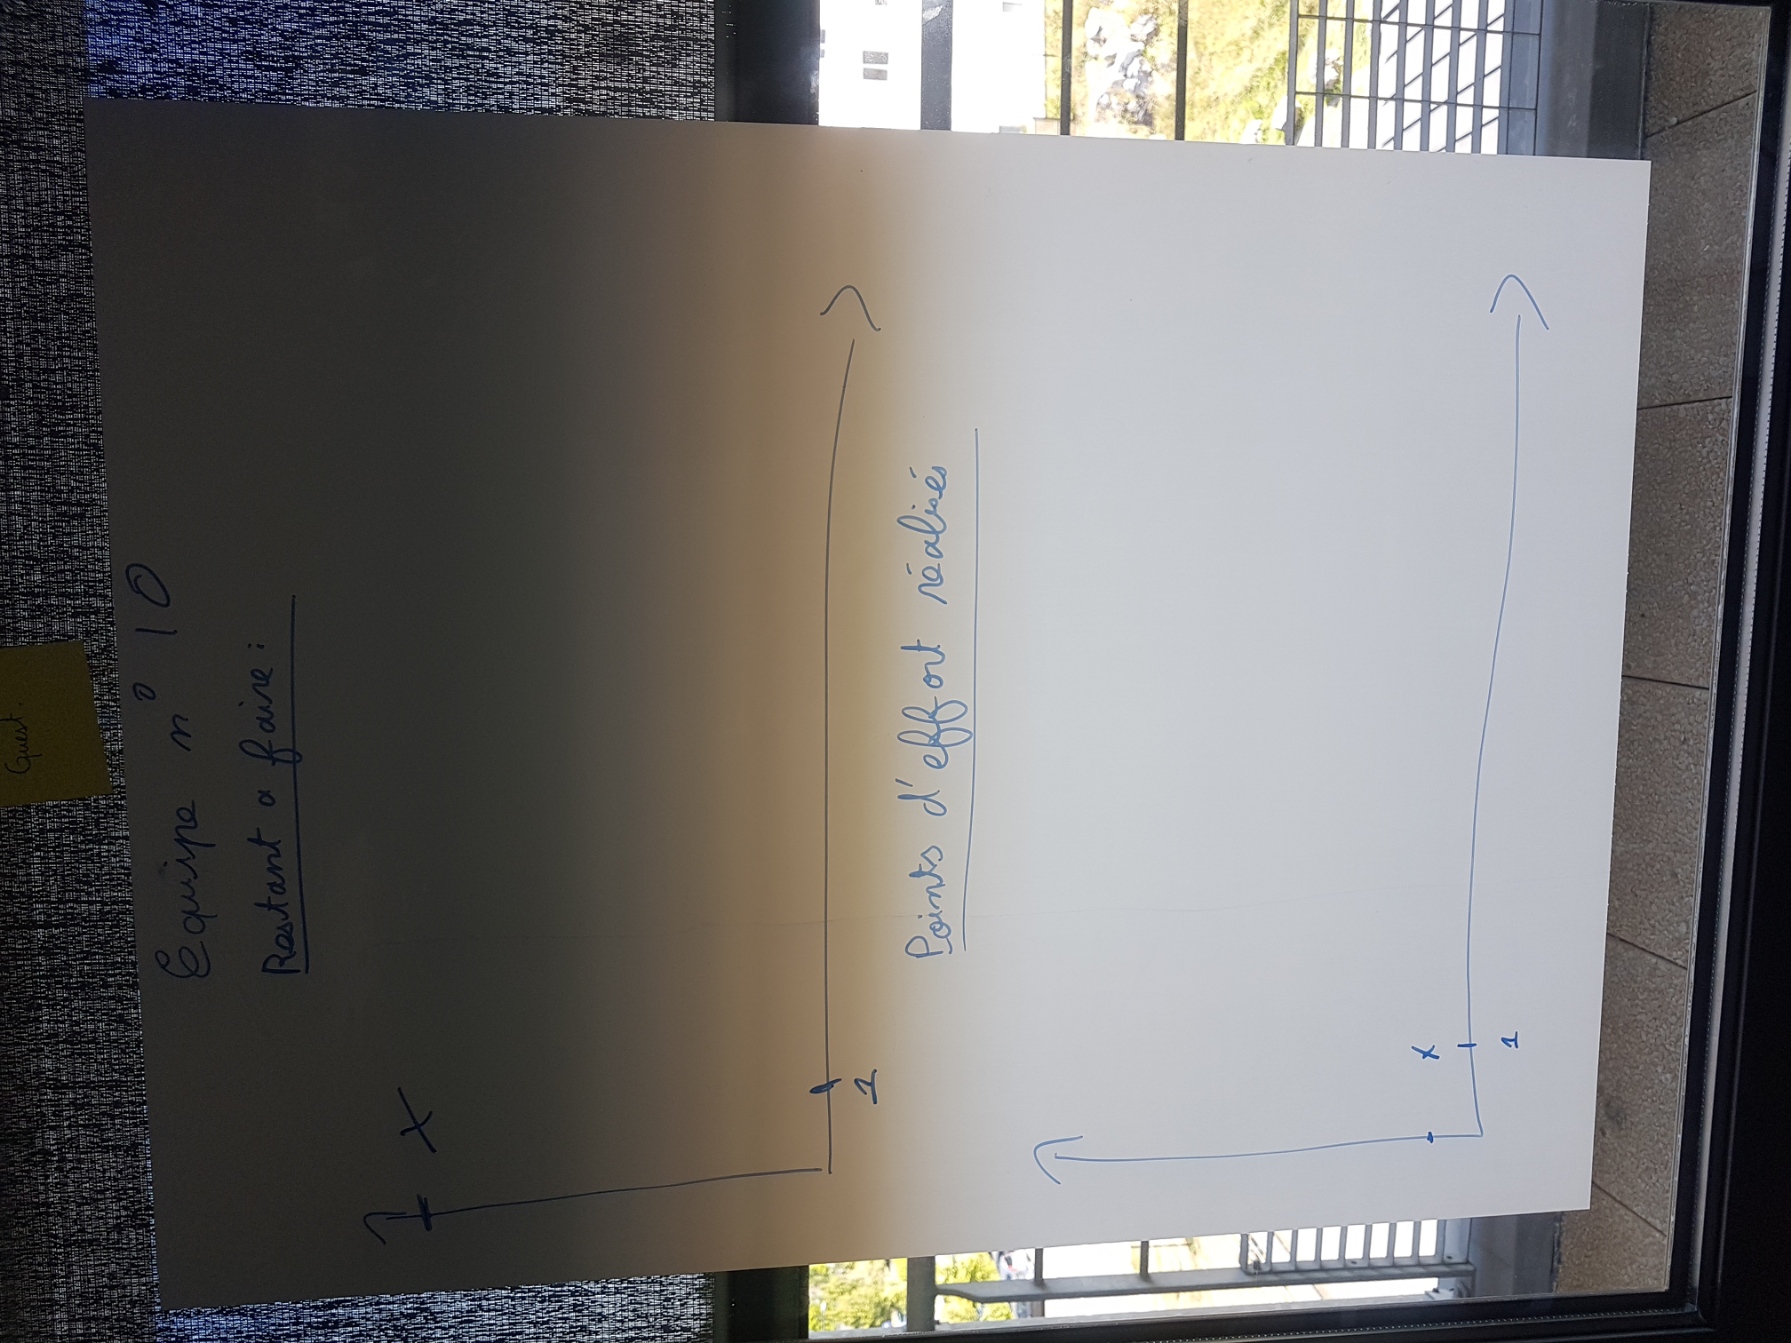 Guest.
Equipe n° 10
Restant a faire :
x
1
Points d'effort réalisés
x
1